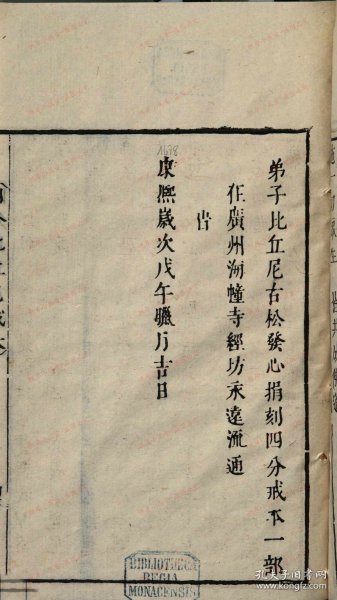 弟子比丘尼古松發心捐刻四分戒本一部
在廣州海幢寺經坊永遠流通
康熙歲次戊午臘月吉日
1678
BIBLIOTHECA
REGIA
MONACENSIS